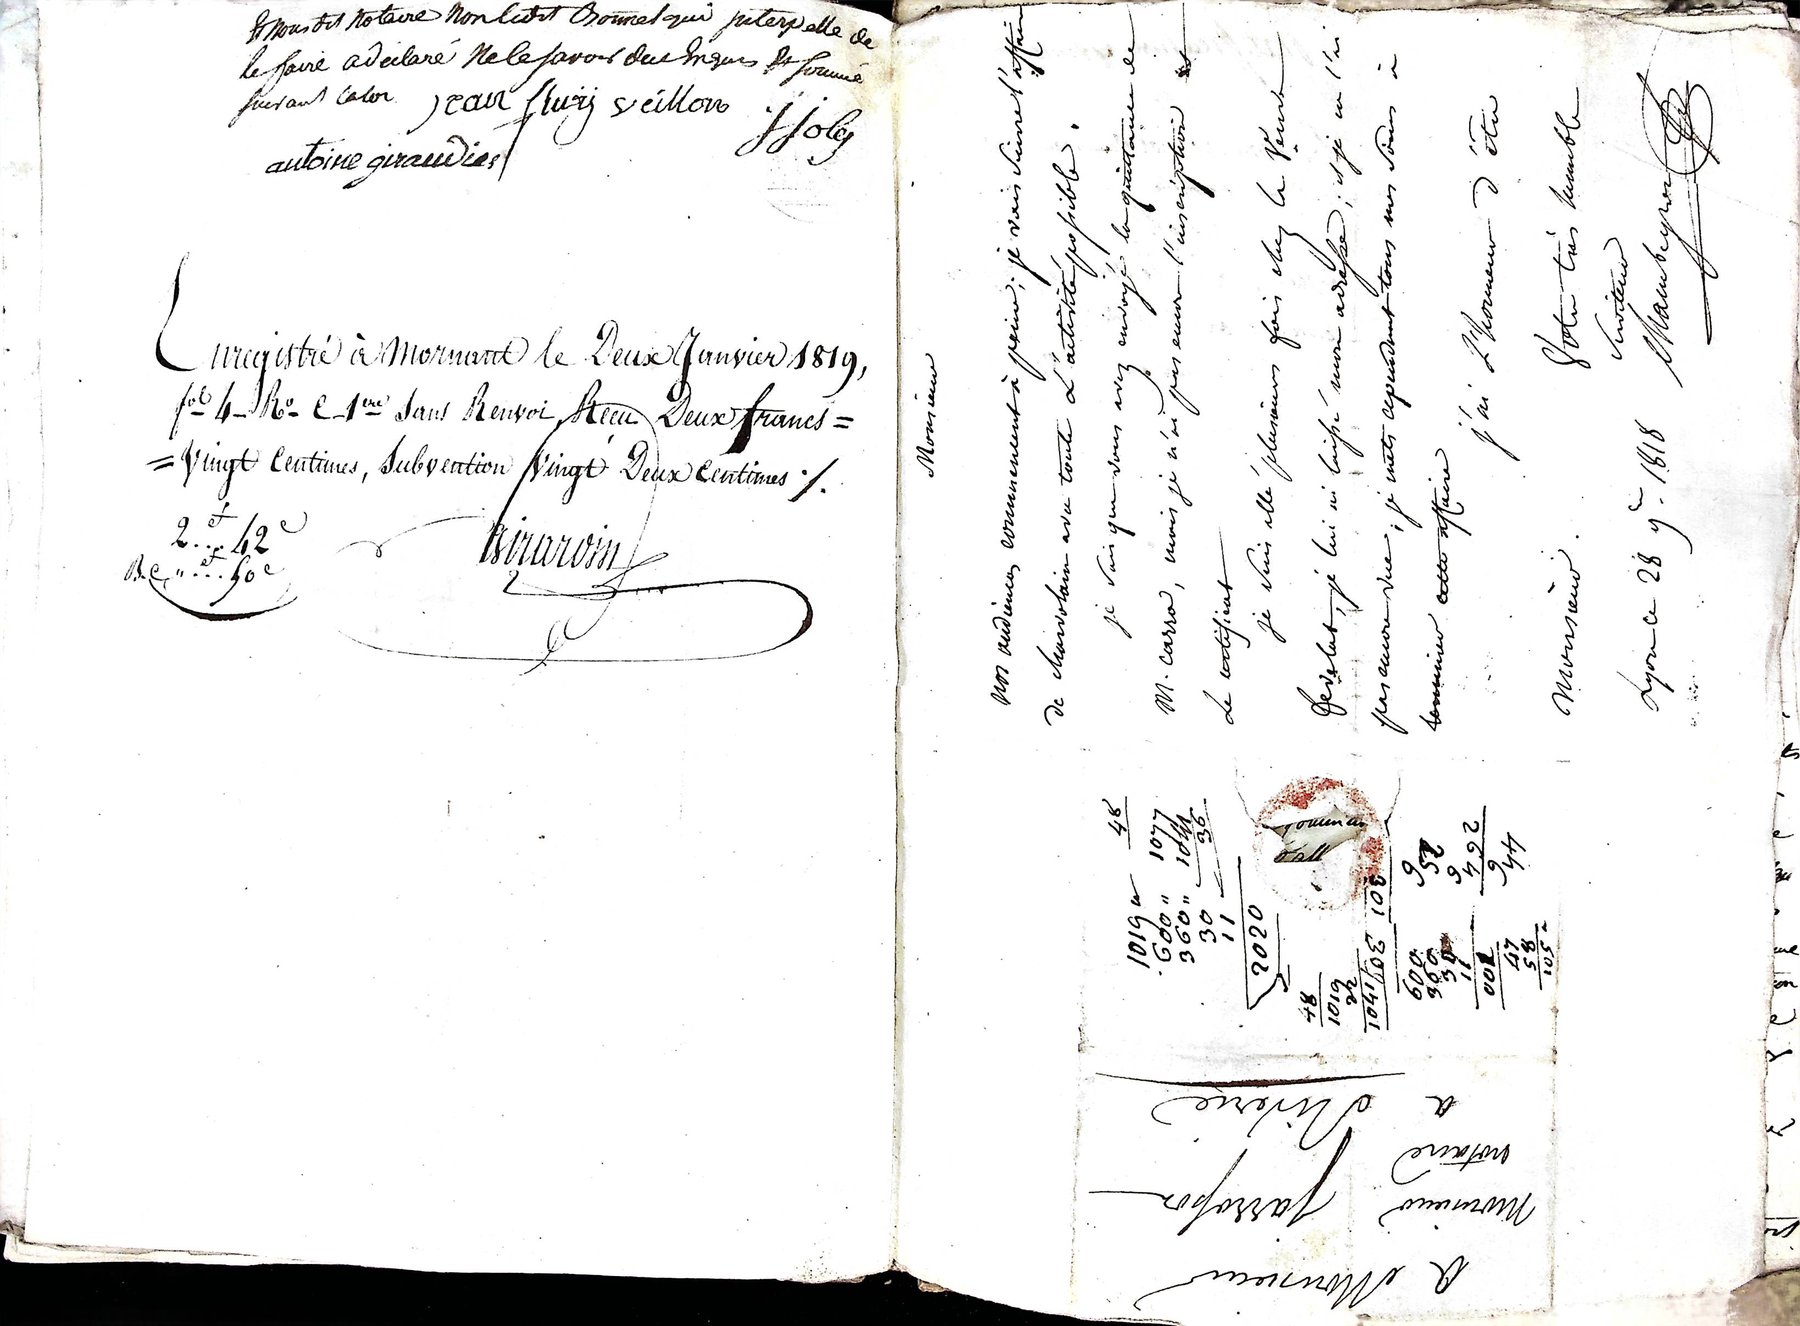 Et nous dit Notaire Non ledit Bonnet qui interpelle de
le faire a declaré Ne le savoir de ce Enquis Et sommé
suivant la loi
jean fleury veillon
JJoly
antoine giraudier
Enregistré à Mornant le Deux Janvier 1819,
fol 4 Ro C 1ere Sans Renvoi, Recu Deux francs =
= Vingt Centimes, Subvention Vingt Deux Centimes ./.
2 . . . 42 c
" . . . 50 c
Girardin
Monsieur
nos audiences commencent à peine; je vais suivre l'affaire
de Charvolain avec toute L'activité possible.
je sais que vous avez envoyé la quittance de
M. carra, mais je n'ai pas encore l'inscription et
Le certificat
je suis allé plusieurs fois chez la Veuve
je lui ai laissé mon adresse; et je ne l'ai
pas encore vue, je mets cependant tous mes soins à
terminer cette affaire
j'ai L'honneur d'être
Monsieur
Votre très humble
Serviteur
Lyon ce 28 9re. 1818
48
1019
600 " 1077
360 "
30 36
11
2020
48
1019
22
1041
600
360
30
11
47
58
105
9
492
9
44
A Monsieur
Monsieur
notaire
a Riverie